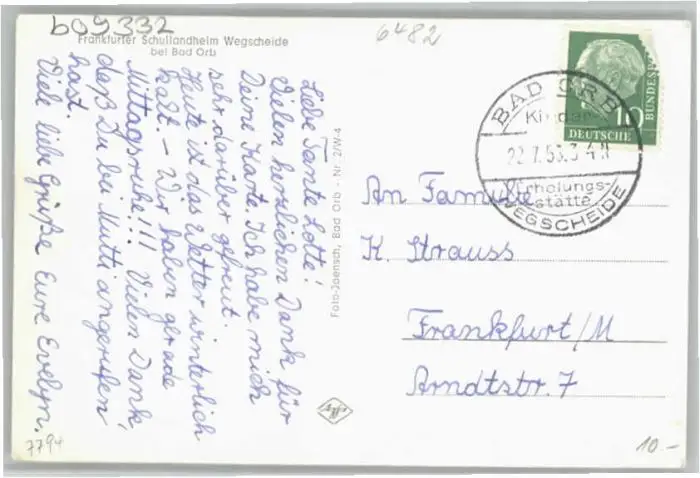 b09332
6482
Frankfurter Schullandheim Wegscheide
bei Bad Orb
Liebe Tante Lotte!
Vielen herzlichen Dank für
Deine Karte. Ich habe mich
sehr darüber gefreut.
Heute ist das Wetter winterlich
kalt. - Wir haben gerade
Mittagsruhe!!! Vielen Dank
daß Du bei Mutti angerufen
hast.
Viele liebe Grüße Eure Evelyn.
Foto-Joensch, Bad Orb - Nr. 2/W-4
BAD ORB
Kinder-
22.7.58
Erholungs-
stätte
WEGSCHEIDE
10
DEUTSCHE
BUNDESP
An Familie
K. Strauss
Frankfurt/M
Arndtstr. 7
7794
10.-